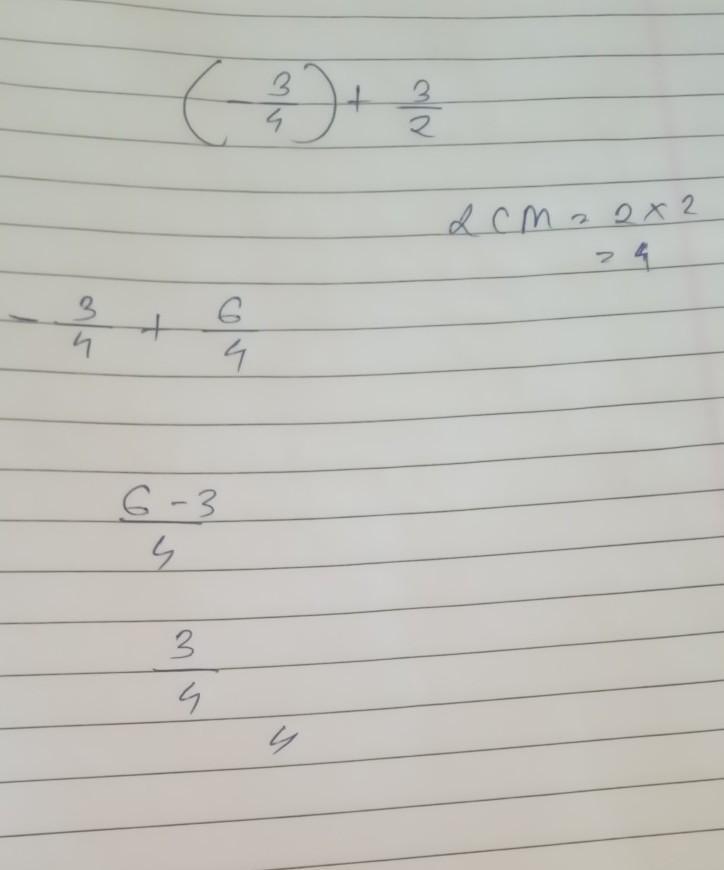 (-3/4) + 3/2
LCM = 2 × 2
= 4
-3/4 + 6/4
6 - 3/4
3/4
4